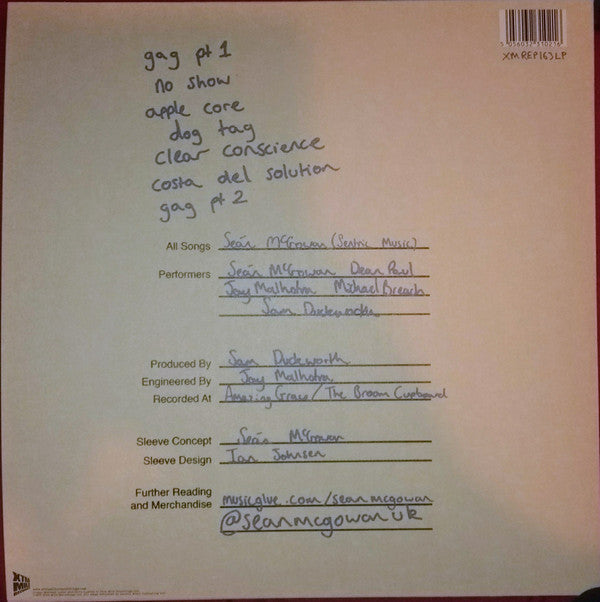 5 056032 310216
XMREP163LP
gag pt 1
no show
apple core
dog tag
clear conscience
costa del solution
gag pt 2
All Songs Seán McGowan (Sentric Music)
Performers Seán McGowan Dean Paul
Jay Malhotra Michael Breach
Sam Duckworth
Produced By Sam Duckworth
Engineered By Jay Malhotra
Recorded At Amazing Grace / The Broom Cupboard
Sleeve Concept Seán McGowan
Sleeve Design Ian Johnsen
Further Reading musicglue.com/seanmcgowan
and Merchandise
@seanmcgowanuk
XTRA
MILE